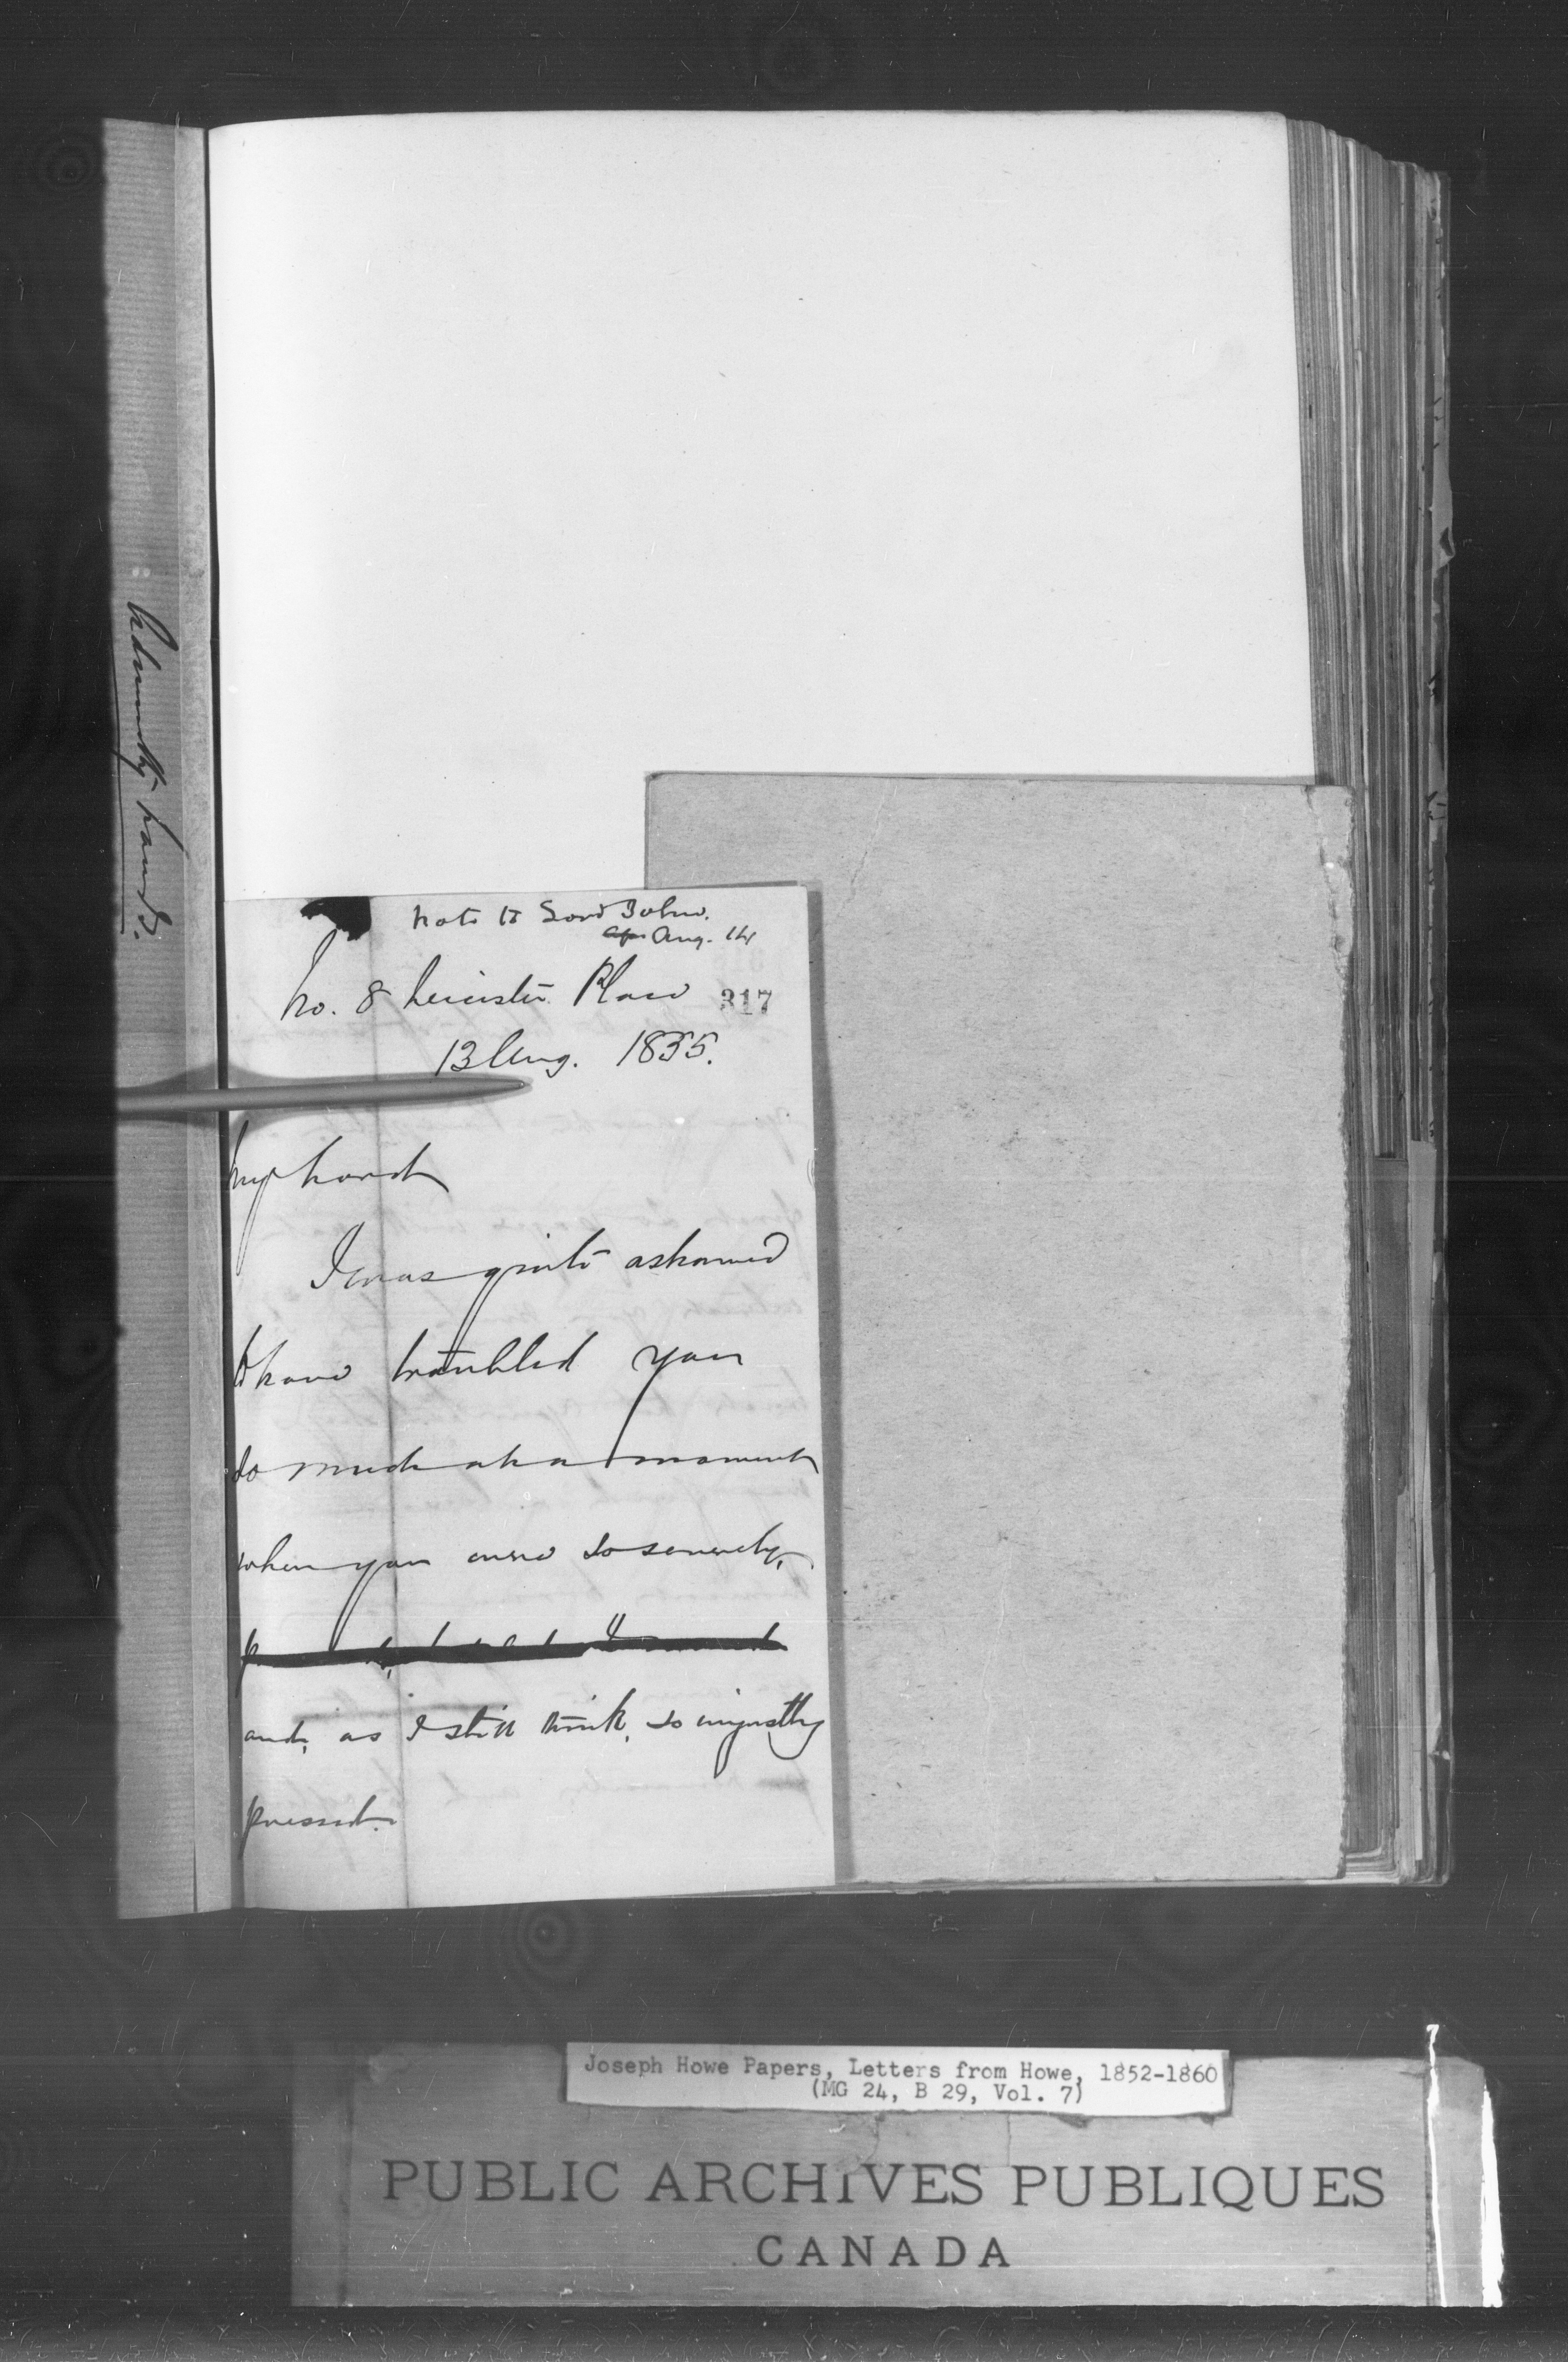 Note to Lord John.
Aug. 14
No. 8 Leicester Place
317
13 Aug. 1855.
My Lord
I was quite ashamed
to have troubled you
so much at a moment
when you were so severely,
and, as I still think, so unjustly
pressed.
hands.
Joseph Howe Papers, Letters from Howe, 1852-1860
(MG 24, B 29, Vol. 7)
PUBLIC ARCHIVES PUBLIQUES
CANADA